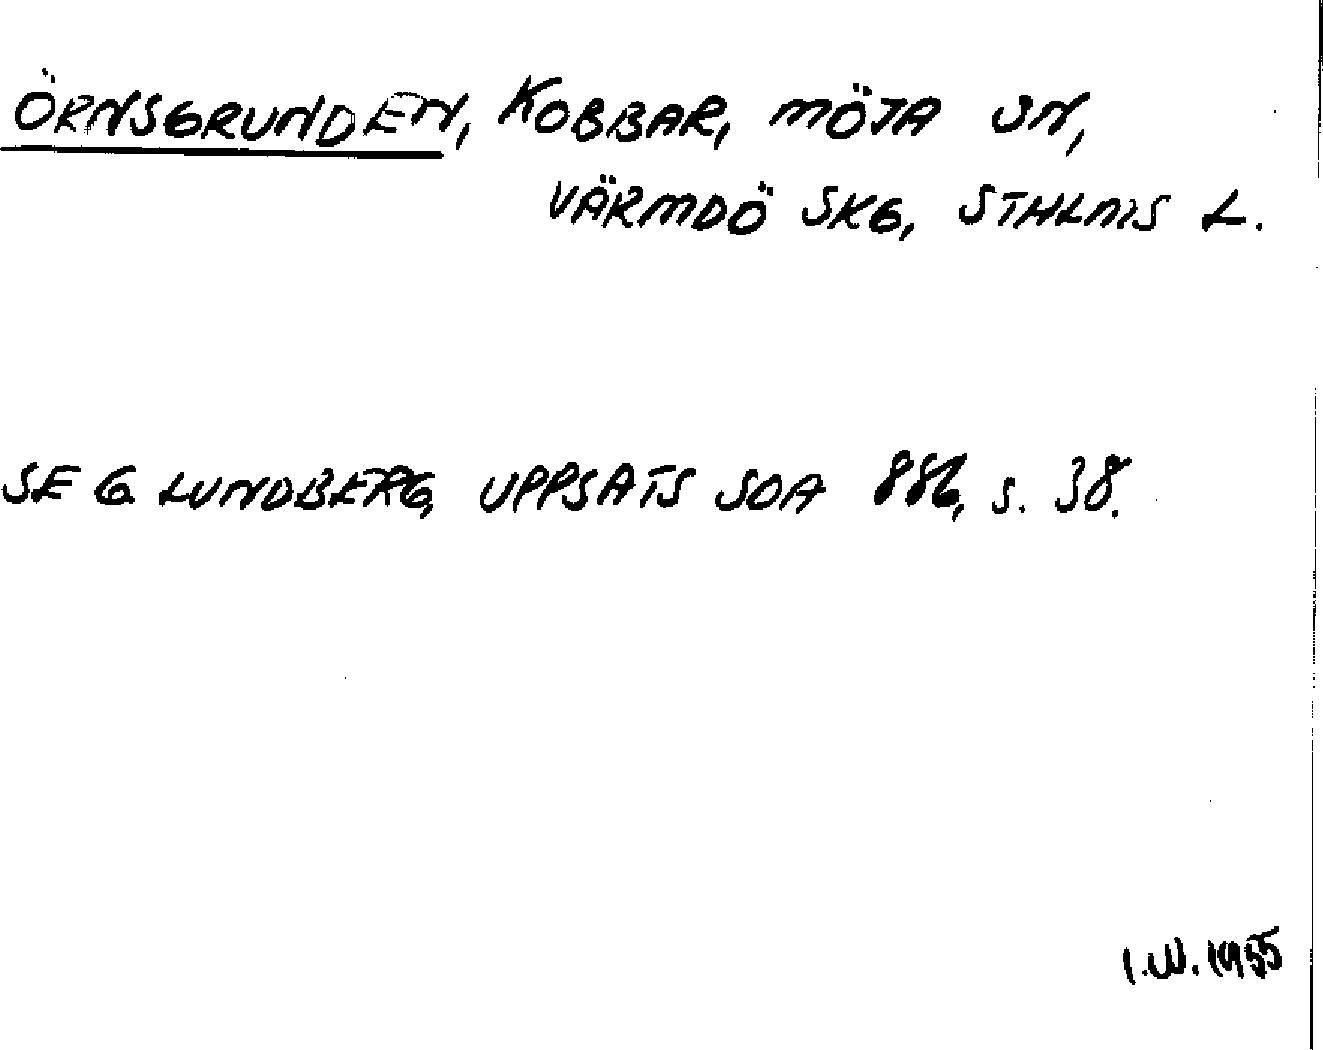 ÖRNSGRUNDEN, KOBBAR, MÖJA SN,
VÄRMDÖ SKG, STHLMS L.
SE G LUNDBERG, UPPSATS SOA 886, s. 38.
I.W. 1955